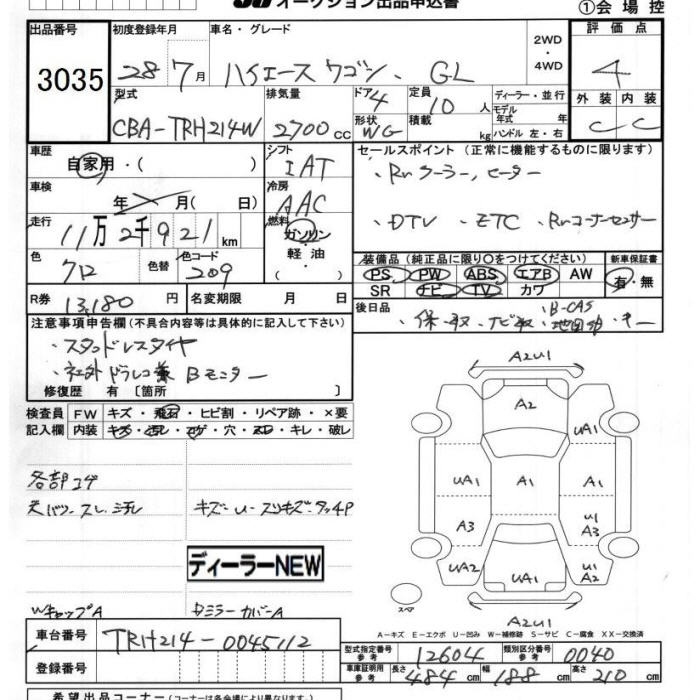 オークション出品申込書 ①会場控
出品番号 初度登録年月 車名・グレード 2WD ・ 4WD 評価点
3035 28年7月 ハイエース ワゴン、GL 4
型式 排気量 ドア 4 定員 10人 ディーラー・並行 外装 内装
CBA-TRH214W 2700cc 形状 WG 積載 kg モデル年式 年 ハンドル 左・右 C C
車歴 シフト セールスポイント (正常に機能するものに限ります)
自家用・( ) IAT ・Rrクーラー,ヒーター
車検 年 月( 日) 冷房 AAC
走行 燃料 ・DTV ・ETC ・Rrコーナーセンサー
11万2千921km ガソリン・軽油
色 色替 色コード 装備品 (純正品に限り〇をつけてください) 新車保証書
クロ 209 ( ) PS PW ABS エアB AW 有・無
SR ナビ TV カワ
R券 13,180円 名変期限 月 日 後日品 ・保・取,ナビ取,B-CAS
注意事項申告欄(不具合内容等は具体的に記入して下さい)
・スタッドレスタイヤ
・社外ドラレコ兼Bモニター
修復歴 有 [箇所 ]
A2U1
検査員 FW キズ・飛石・ヒビ割・リペア跡・×要
記入欄 内装 キズ・汚レ・コゲ・穴・スレ・キレ・破レ
A2
UA1 UA1
各部コゲ UA1 A1 A1
キズ-U-スリキズ-タッチP
A3 U1 A3
ディーラーNEW
UA2 UA1 U1 A2
スペア
WキャップA DミラーカバーA
A2U1
A-キズ E-エクボ U-凹み W-補修跡 S-サビ C-腐食 XX-交換済
車台番号 TRH214-0045112
型式指定番号 参考 12604 類別区分番号 参考 0040
登録番号
車庫証明用 参考 長さ 484cm 幅 188cm 高さ 210cm
希望出品コーナー(コーナーは各会場により